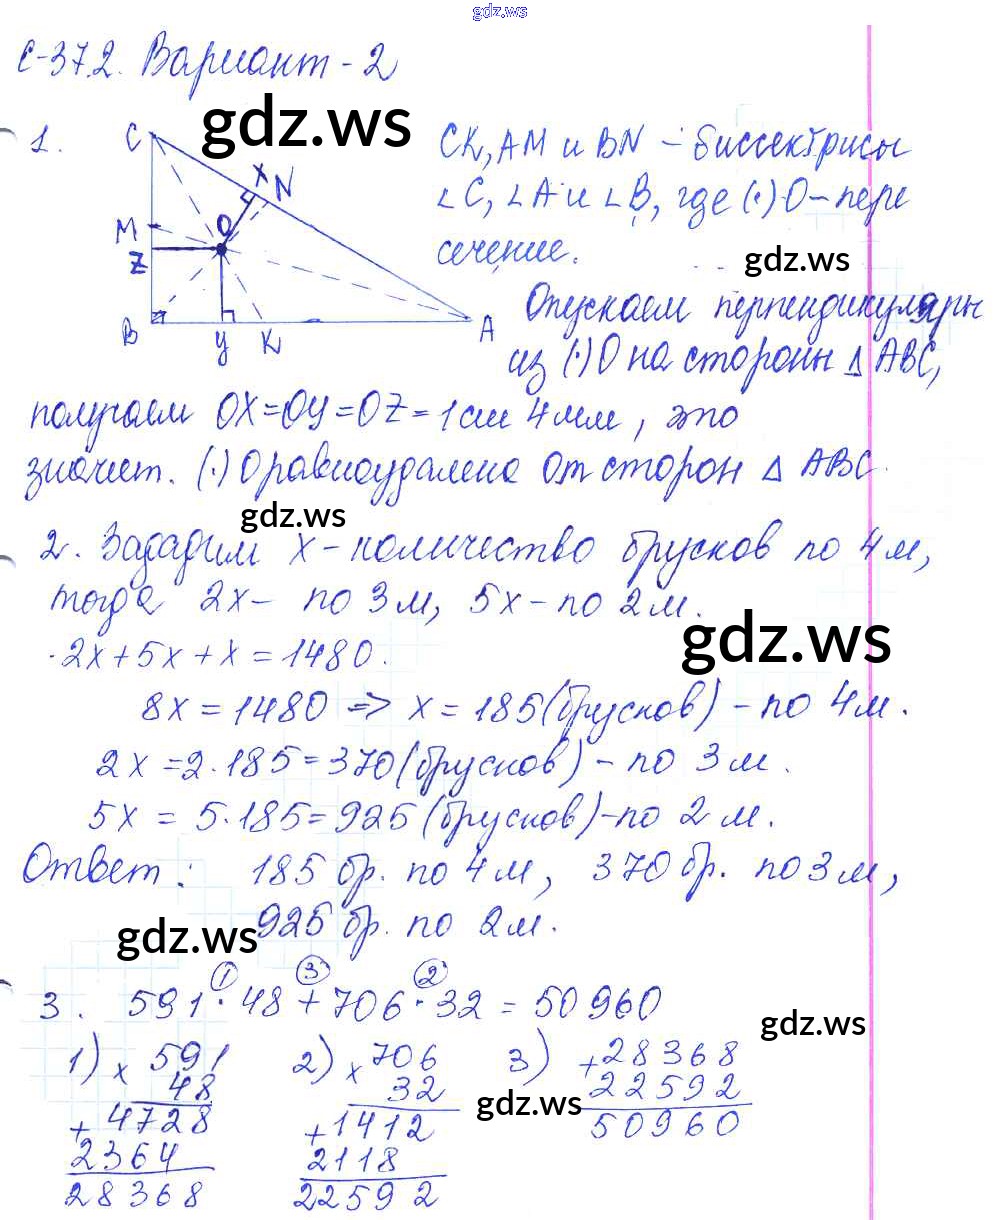 gdz.ws
С-37.2. Вариант - 2
gdz.ws
1.
C
X
N
M
O
Z
B
У
K
A
СК, АМ и BN - биссектрисы
∠C, ∠A и ∠B, где (·) О - пере
сечение.
gdz.ws
Опускаем перпендикуляры
из (·) О на стороны Δ АВС,
получаем OX = OY = OZ = 1 см 4 мм, это
значит. (·) О равноудалена от сторон Δ АВС.
gdz.ws
2. Зададим x - количество брусков по 4 м,
тогда 2x - по 3 м, 5x - по 2 м.
gdz.ws
2x + 5x + x = 1480.
8x = 1480 => x = 185 (брусков) - по 4 м.
2x = 2·185 = 370 (брусков) - по 3 м.
5x = 5·185 = 925 (брусков) - по 2 м.
Ответ: 185 бр. по 4 м, 370 бр. по 3 м,
925 бр. по 2 м.
gdz.ws
1 3 2
3. 591 · 48 + 706 · 32 = 50960
gdz.ws
1) × 591
48
+ 4728
2364
28368
2) × 706
32
+ 1412
2118
22592
3) + 28368
22592
50960
gdz.ws